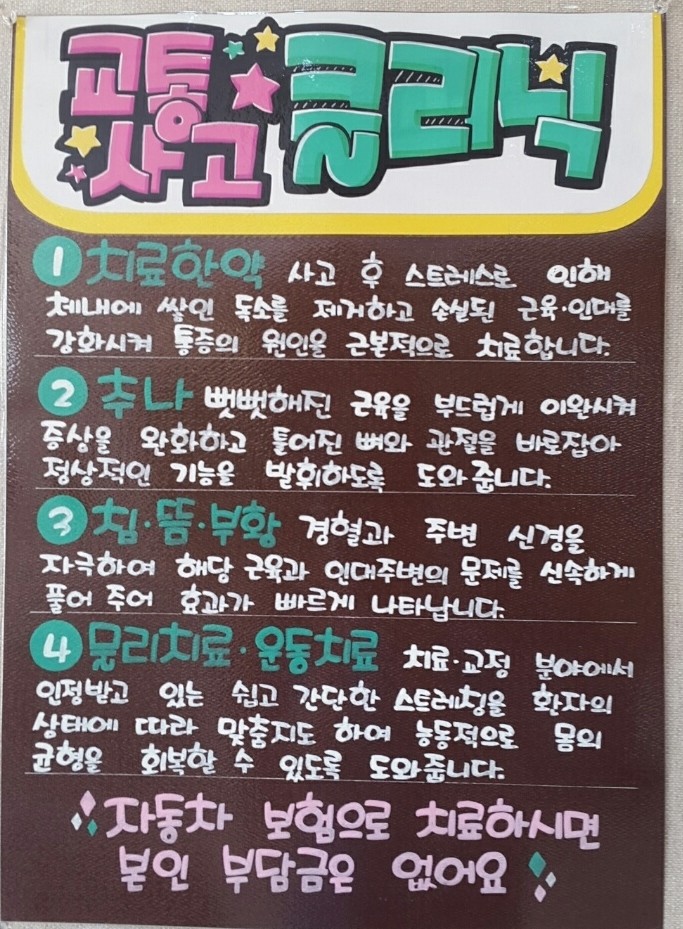 교통사고 클리닉
1 치료한약 사고 후 스트레스로 인해
체내에 쌓인 독소를 제거하고 손실된 근육·인대를
강화시켜 통증의 원인을 근본적으로 치료합니다.
2 추나 뻣뻣해진 근육을 부드럽게 이완시켜
증상을 완화하고 틀어진 뼈와 관절을 바로잡아
정상적인 기능을 발휘하도록 도와줍니다.
3 침·뜸·부황 경혈과 주변 신경을
자극하여 해당 근육과 인대주변의 문제를 신속하게
풀어 주어 효과가 빠르게 나타납니다.
4 물리치료·운동치료 치료·교정 분야에서
인정받고 있는 쉽고 간단한 스트레칭을 환자의
상태에 따라 맞춤지도 하여 능동적으로 몸의
균형을 회복할 수 있도록 도와줍니다.
자동차 보험으로 치료하시면
본인 부담금은 없어요